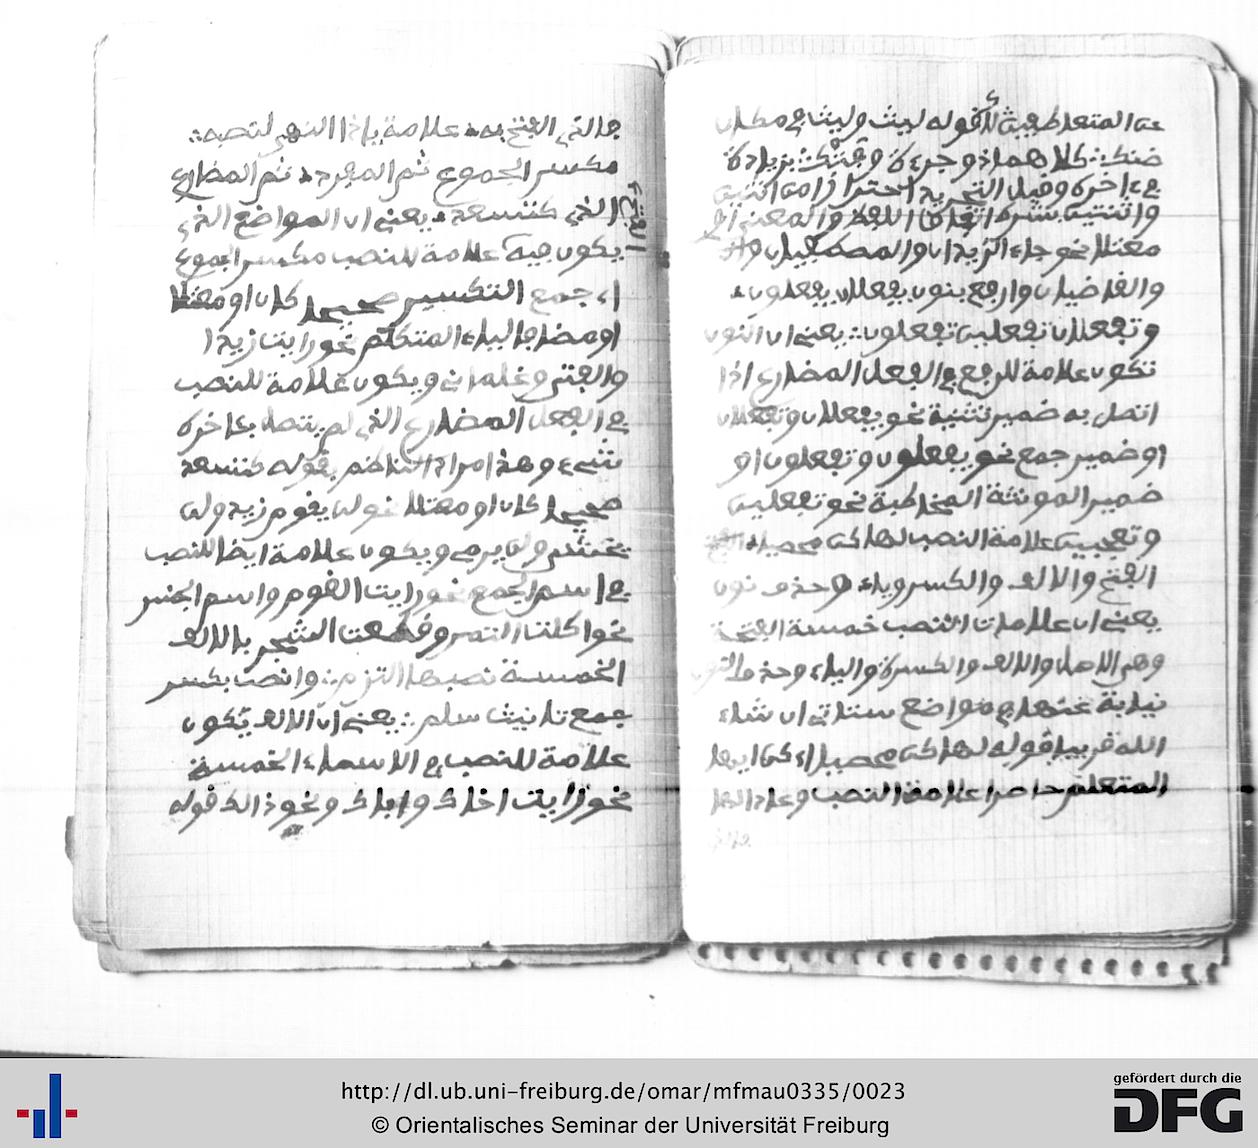 عن المتعاطفين كقوله ليث وليث في مكان
ضنك كلاهما ذو وبزيادة
في ءاخره وقيل التجريد احترازا من اثنين
واثنتين بشرط اتفاق اللفظ والمعنى
نحو جاء الزيدان والمصطفيان
والقاضيان وارفع بنون يفعلان يفعلون
وتفعلان تفعلين تفعلون يعني ان النون
تكون علامة للرفع في الفعل المضارع اذا
اتصل به ضمير تثنية نحو يفعلان وتفعلان
او ضمير جمع نحو يفعلون وتفعلون او
ضمير المونثة المخاطبة نحو تفعلين
علامة النصب لها كن محصيا
الفتح والالف والكسر وياء وحذف نون
يعني ان علامات النصب خمسة الفتحة
وهي الاصل والالف والكسرة والياء وحذف النون
نيابة عنها في مواضع ستاتي ان شاء
الله قريبا قوله لها كن محصيا اي كن ايها
المتعلم حاصرا علامة النصب
فالذي الفتح به علامة ياذا النهى لنصبه
مكسر الجموع ثم المفرد ثم المضارع
الذي كتسعد يعني ان المواضع التي
الفتحة
يكون فيه علامة للنصب مكسر الجموع
اي جمع التكسير صحيحا كان او معتلا
او مضافا لياء المتكلم نحو رايت زيدا
والفتى وغلماني ويكون علامة للنصب
في الفعل المضارع الذي لم يتصل بئاخره
شيء وهذا مراد الناظم بقوله كتسعد
صحيحا كان او معتلا نحو لن يقوم زيد ولن
يخشى ولن يرمي ويكون علامة ايضا للنصب
في اسم الجمع نحو رايت القوم واسم الجنس
نحو اكلت التمر وقطعت الشجر بالالف
الخمسة نصبها التزم وانصب بكسر
جمع تانيث سلم يعني ان الالف يكون
علامة للنصب في الاسماء الخمسة
نحو رايت اخاك واباك ونحو ذالك قوله
http://dl.ub.uni-freiburg.de/omar/mfmau0335/0023
© Orientalisches Seminar der Universität Freiburg
gefördert durch die
DFG